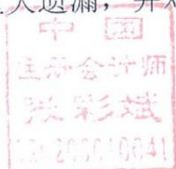 大遗漏，并对
中国
注册会计师
张彩斌